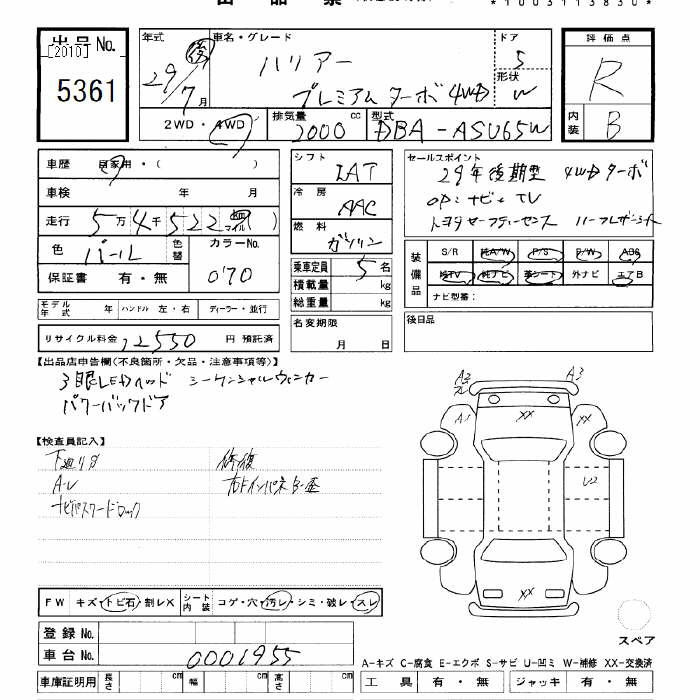 出品票
*1003113830*
出品 No. 年式 後 車名・グレード ドア 評価点
[2010] 29 ハリアー 5
5361 7 月 プレミアム ターボ 4WD 形状 W R
2WD ・ 4WD 排気量 cc 2000 型式 DBA-ASU65W 内装 B
車歴 自家用・( ) シフト IAT セールスポイント
29年後期型 4WDターボ
車検 年 月 冷房 AAC OP:ナビ+TV
走行 5万4千522 マイル ) トヨタセーフティーセンス ハーフレザーシート
燃料 ガソリン
色 パール 色替 カラーNo. 070 装備品 S/R 純A/W P/S P/W ABS
乗車定員 5名
保証書 有・無 積載量 kg 純TV 純ナビ 革シート 外ナビ エアB
総重量 kg ナビ型番:
モデル年式 年 ハンドル 左・右 ディーラー・並行 名変期限 月 日 後日品
リサイクル料金 12550 円 預託済
【出品店申告欄(不良箇所・欠品・注意事項等)】
3眼LEDヘッド シーケンシャルウィンカー
パワーバックドア
A2 A3
A1 XX
U2
XX
【検査員記入】
下廻りサ 修復
A-U
ナビパスワードロック
FW キズ・トビ石・割レX シート内装 コゲ・穴・汚レ・シミ・破レ・スレ
登録 No.
車台 No. 0001955
スペア
A-キズ C-腐食 E-エクボ S-サビ U-凹ミ W-補修 XX-交換済
車庫証明用 長さ cm 幅 cm 高さ cm 工具 有・無 ジャッキ 有・無